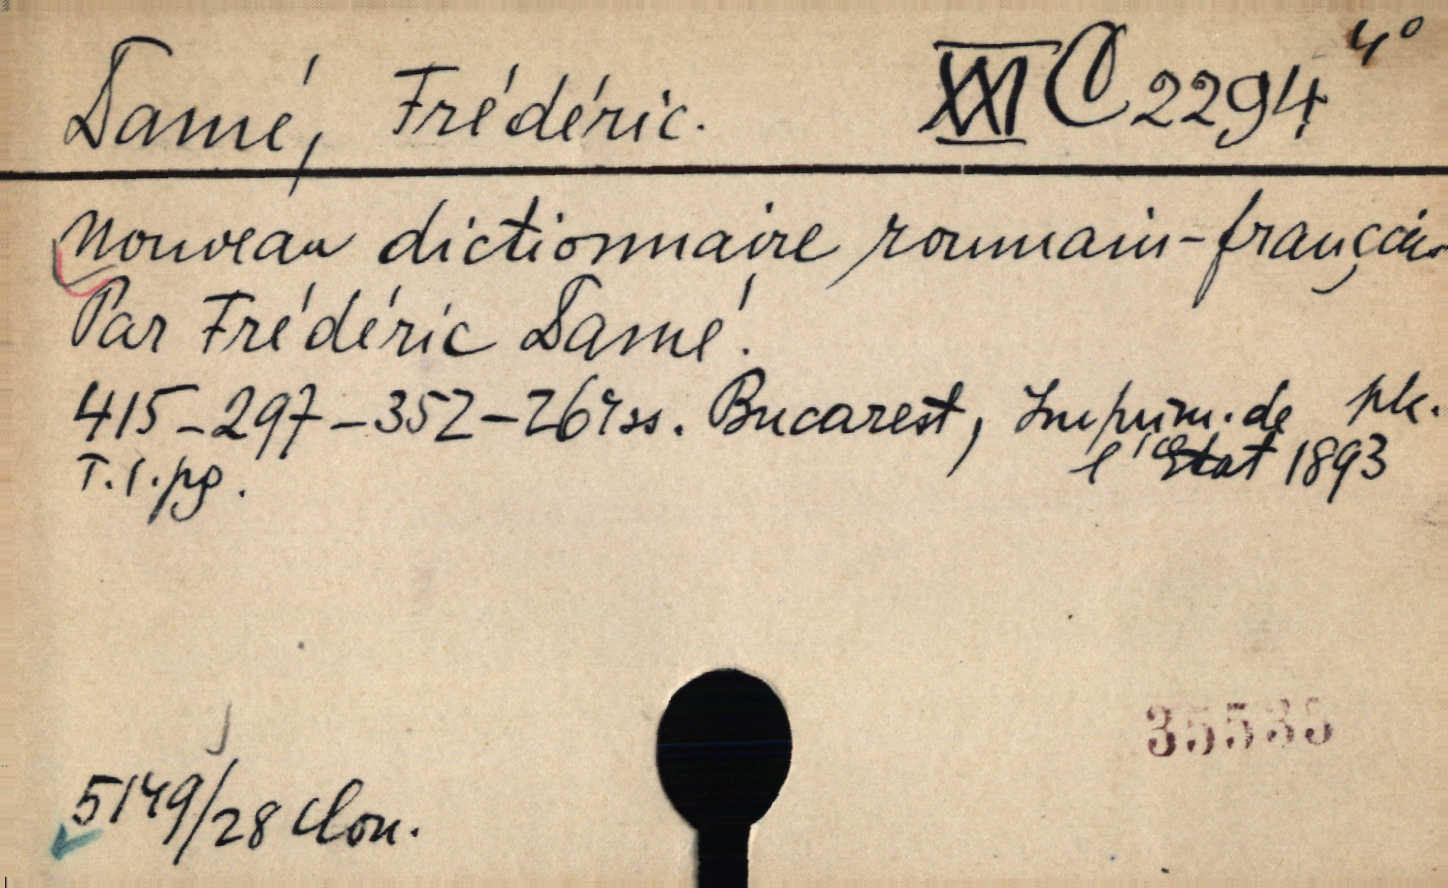 Damé, Frédéric. XXI C 2294 4°
Nouveau dictionnaire roumain-français
Par Frédéric Damé.
415-297-352-267 ss. Bucarest, Imprim. de l'Etat 1893 pk.
T. 1. pg.
35535
5149/28 don.